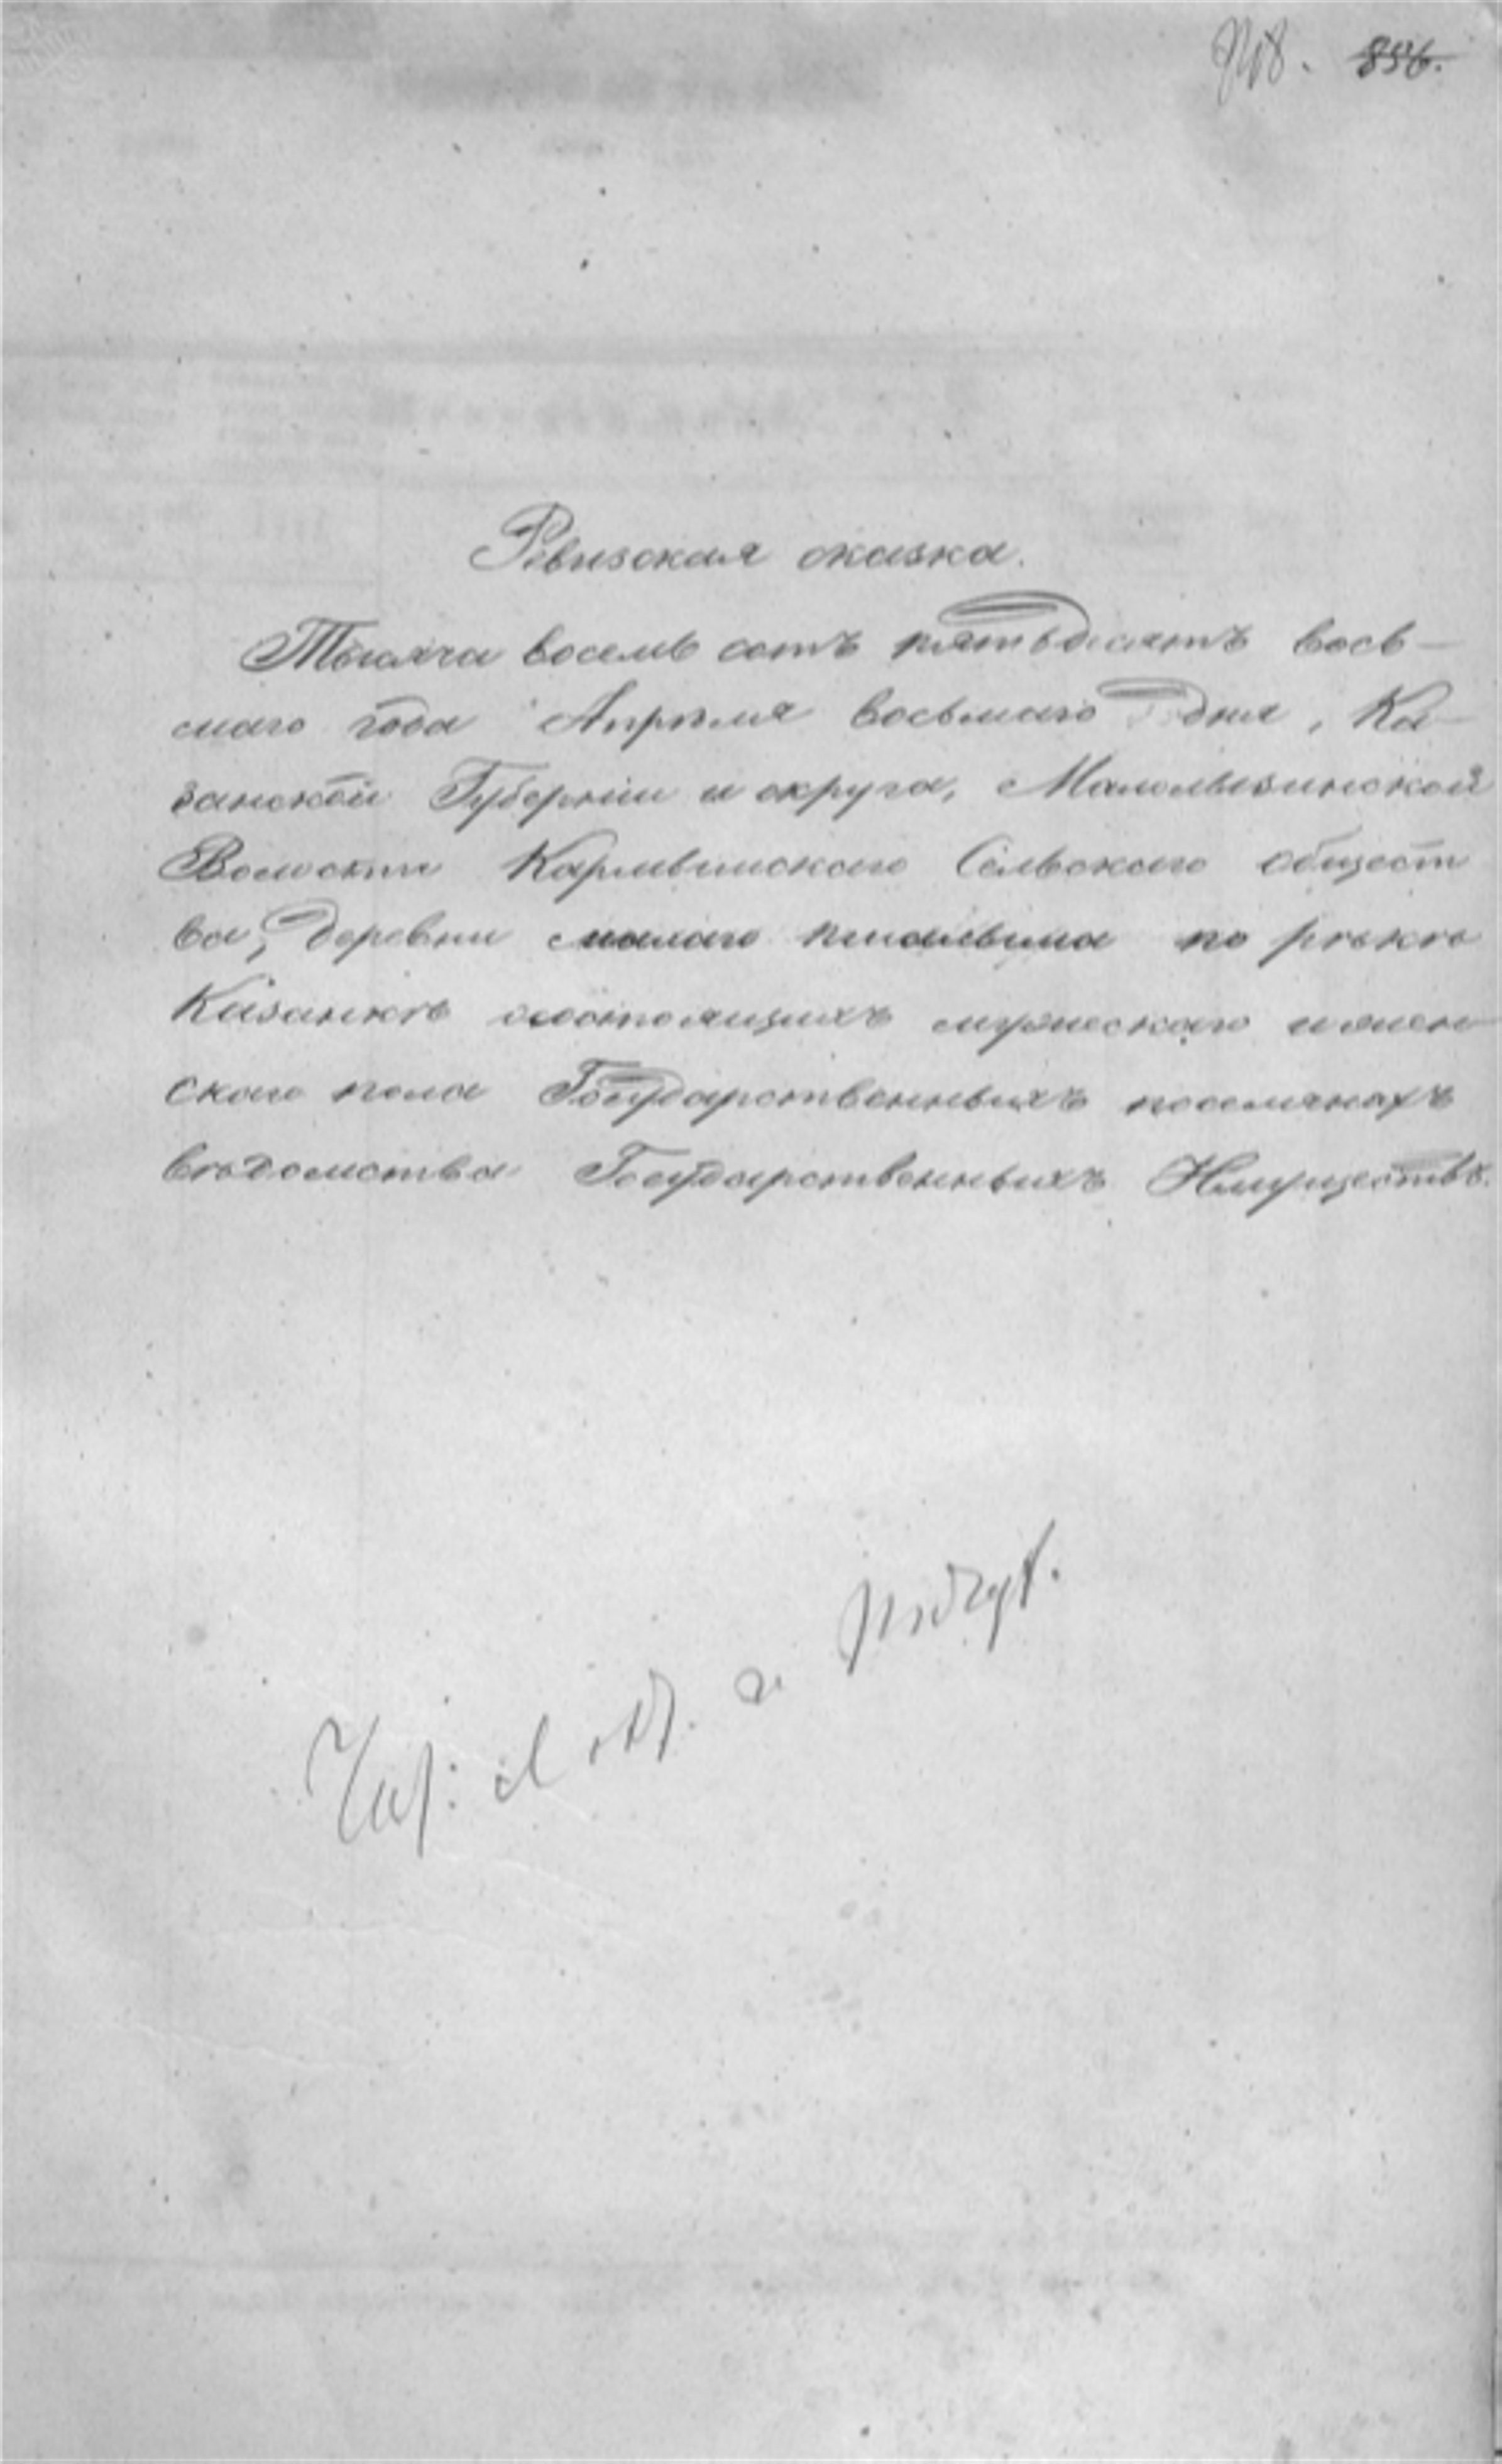 856.
Ревизская сказка.
Тысяча восемь сотъ пятьдесятъ вось-
маго года Апрѣля восьмаго дня, Ка-
занской Губерніи и округа, Мамолызинской
Волости Каршвинскаго Сельскаго общест
ва, деревни малаго по рѣкѣ
Казанкѣ состоящихъ мужескаго и жен
скаго пола Государственныхъ поселянахъ
вѣдомства Государственныхъ Имуществъ.